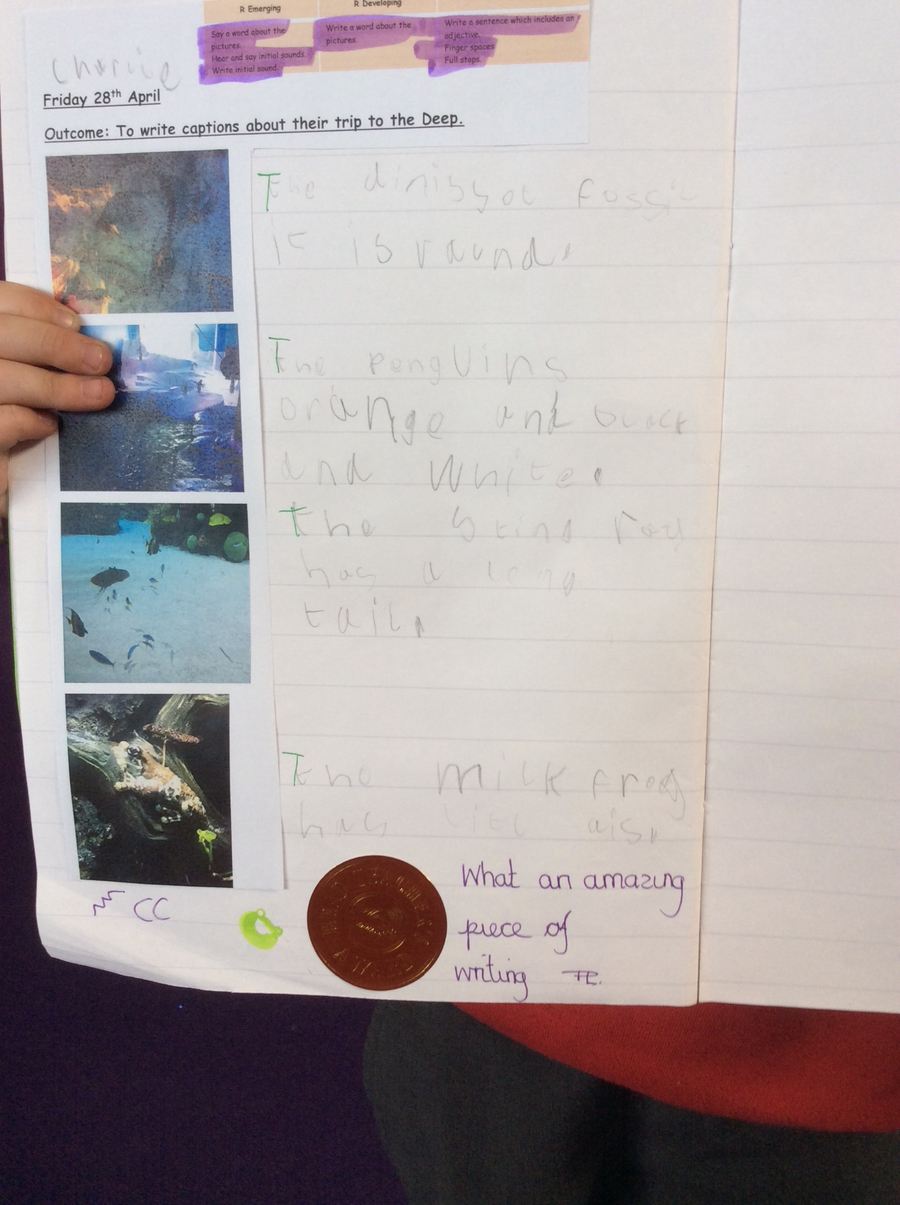 R Emerging
R Developing
Say a word about the
pictures.
Hear and say initial sounds.
Write initial sound.
Write a word about the
pictures.
Write a sentence which includes an
adjective.
Finger spaces
Full stops.
Charlie
Friday 28th April
Outcome: To write captions about their trip to the Deep.
The fossi
it is raund.
The penguins
orange and black
and white.
The sting ray
has a long
tail.
The milk frog
has
CC
What an amazing
piece of
writing